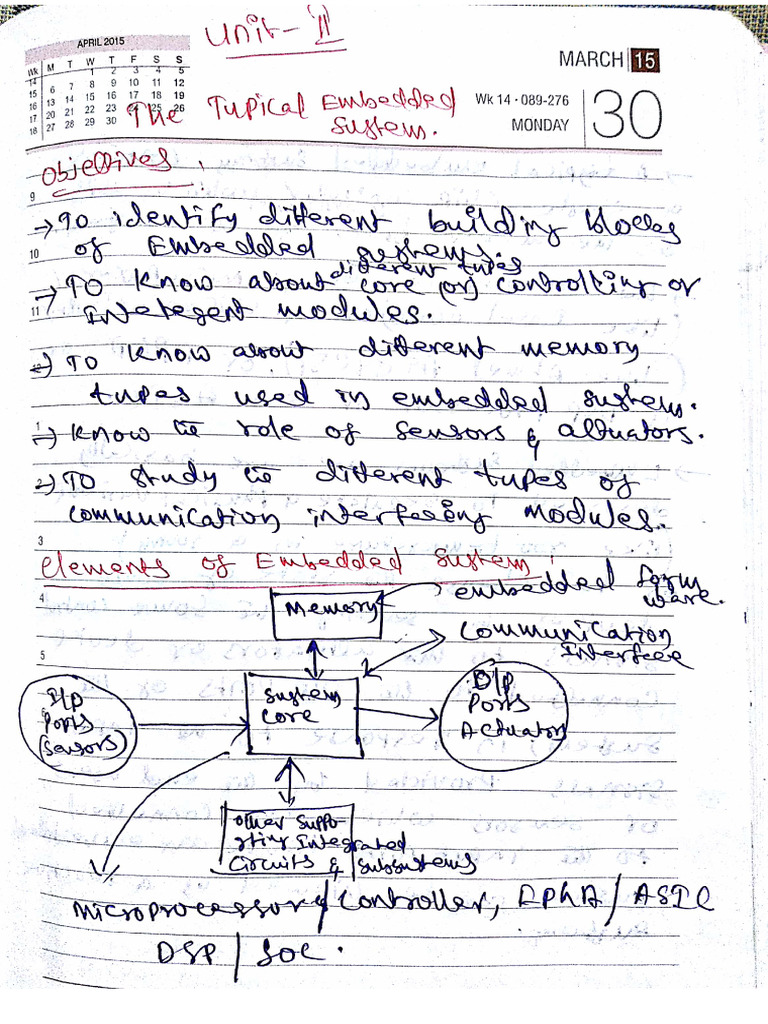 Unit-II
APRIL 2015
Wk M T W T F S S
14 1 2 3 4 5
15 6 7 8 9 10 11 12
16 13 14 15 16 17 18 19
17 20 21 22 23 24 25 26
18 27 28 29 30
MARCH 15
Wk 14 · 089-276
MONDAY
30
The Tupical Embedded
System.
Objectives.
9
→ To identify different building blocks
10
of Embedded systems.
different types
→ To know about core (or) controlling or
11
Integent modules.
→ To know about different memory
types used in embedded system.
1
→ Know the role of sensors & actuators.
2
→ To study the different types of
communication interfacing modules.
3
Elements of Embedded System:
4
Memory
embedded firm
ware.
Communication
Interface
5
I/p
Ports
(Sensors)
System
core
O/p
Ports
Actuator
other Suppo-
rting Integrated
Circuits & subsystems
Microprocessor/Controller, FPGA/ASIC
DSP/SOC.